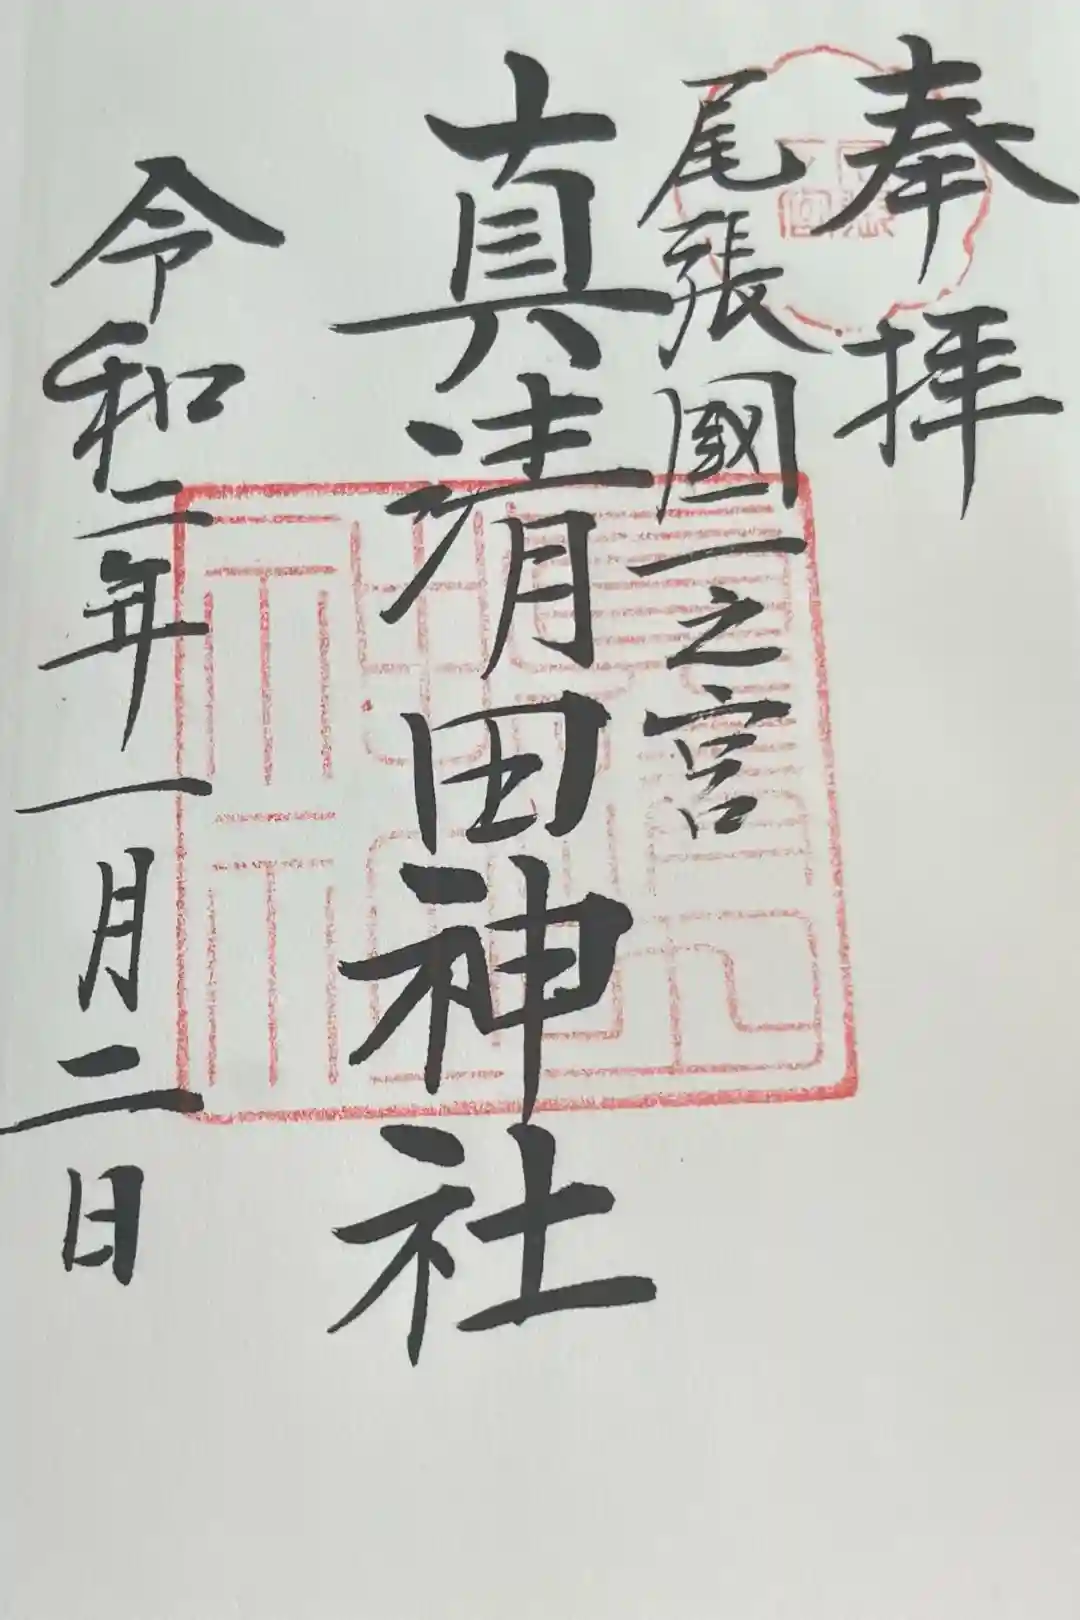 奉拝
尾張國一之宮
真清田神社
令和二年一月二日